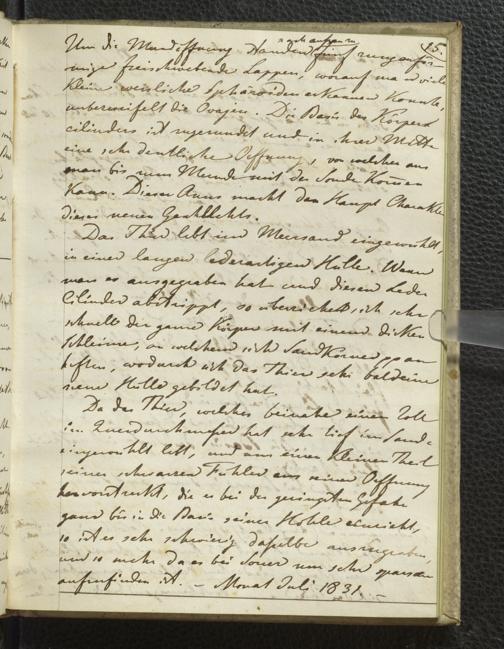 15.
nach aussen
Um die Mundöffnung standen fünf zungenför-
mige freischwebende Lappen, worauf man viele
kleine weisliche Sphäroiden erkennen konnte,
unbezweifelt die Ovarien. Die Basis des Körpers
cilinders ist zugerundet und in ihrer Mitte
eine sehr deutliche Oeffnung, von welcher aus
man bis zum Munde mit der Sonde kommen
kann. Dieser Anus macht den Haupt Charakter
dieses neuen Geschlechts.
Das Thier lebt im Meersand eingewühlt,
in einer langen lederartigen Hülle. Wann
man es ausgegraben hat und diesen Leder
Cilinder abstrippt, so überzieht sich sehr
schnelle der ganze Körper mit einem dicken
Schleime, an welchem sich Sandkörner pp an
heften, wodurch sich das Thier sehr bald eine
neue Hülle gebildet hat.
Da das Thier, welches beinahe einen Zoll
im Querdurchmesser hat sehr tief im Sande
eingewühlt lebt, und nur einen kleinen Theil
seiner schwarzen Fühler aus seiner Oeffnung
hervorstreckt, die es bei der geringsten Gefahr
ganz bis in die Basis seiner Höhle einzieht,
so ist es sehr schwierig dasselbe auszugraben,
und so mehr da es bei Souer nur sehr sparsam
aufzufinden ist. – Monat Juli 1831. –